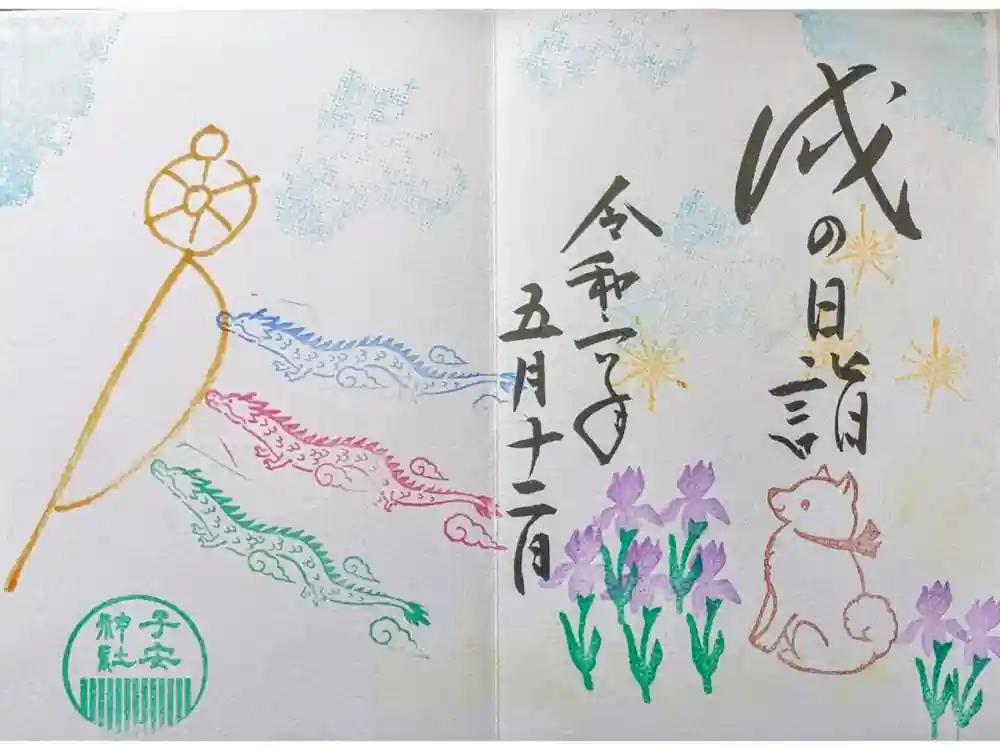 戌の日詣
令和四年
五月十二日
子安
神社